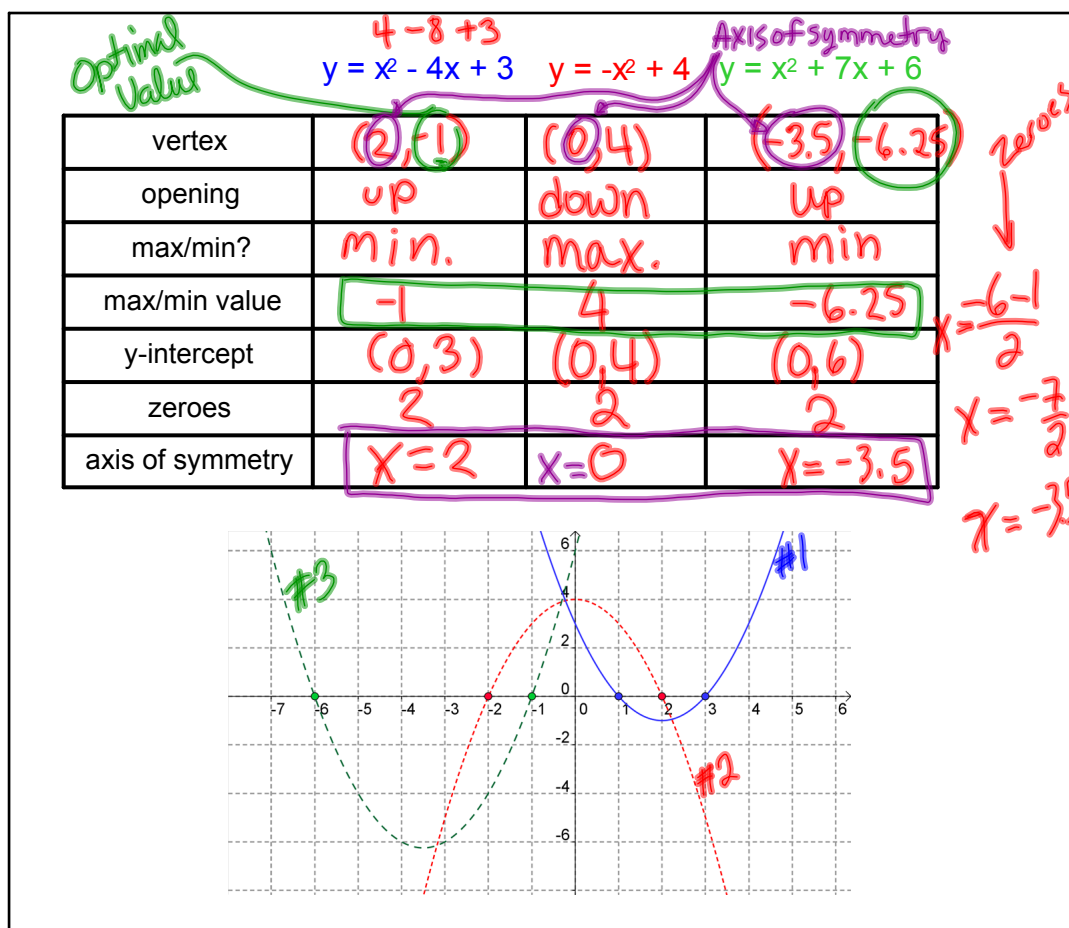 4 - 8 + 3
Optimal Value
Axis of symmetry
y = x² - 4x + 3 y = -x² + 4 y = x² + 7x + 6
vertex (2, -1) (0, 4) (-3.5, -6.25)
opening up down up
max/min? min. max. min
max/min value -1 4 -6.25
y-intercept (0, 3) (0, 4) (0, 6)
zeroes 2 2 2
axis of symmetry x = 2 x = 0 x = -3.5
zeroes
x = -6 - 1 / 2
x = -7 / 2
x = -3.5
#3 #1
#2
6
4
2
0
-7 -6 -5 -4 -3 -2 -1 0 1 2 3 4 5 6
-2
-4
-6